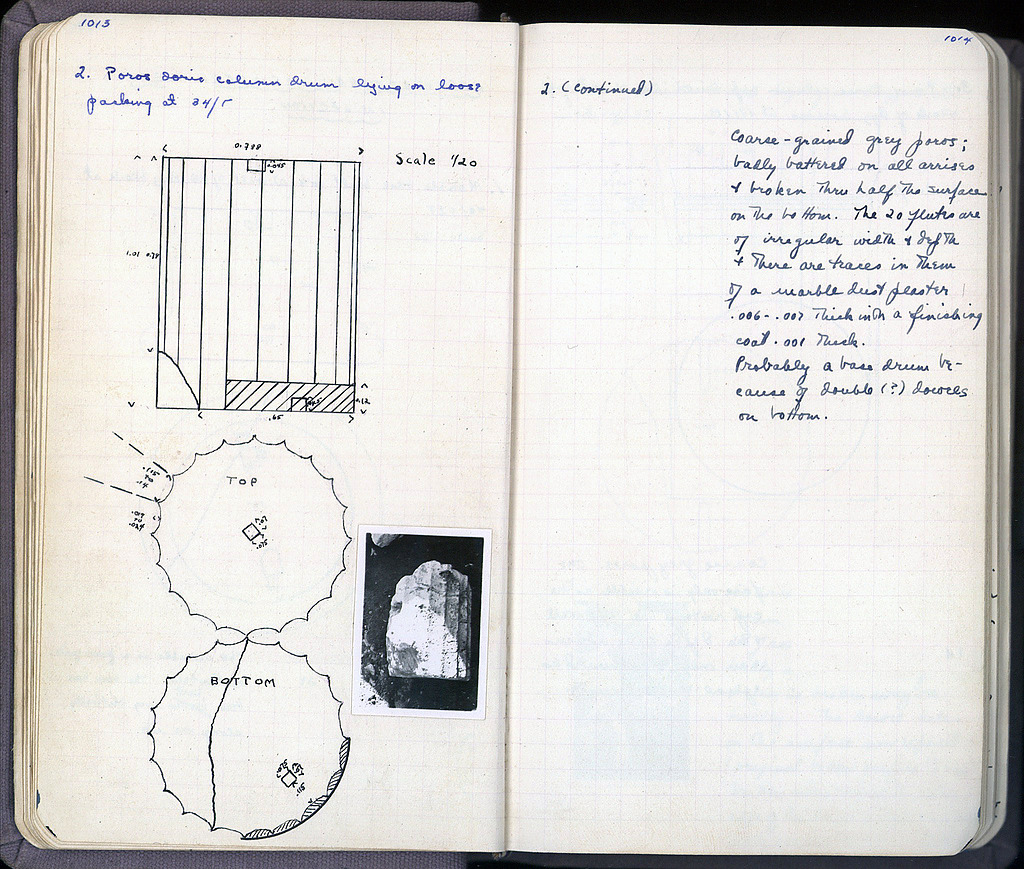 1013
2. Poros doric column drum lying on loose
packing at 34/Γ
0.788
Scale 1/20
.045
1.01
.12
.65
TOP
.115
TO
.14
.019
TO
.024
.07
.075
BOTTOM
1014
2. (continued)
Coarse-grained grey poros;
badly battered on all arrises
& broken thru half the surface
on the bottom. The 20 flutes are
of irregular width & depth
& there are traces in them
of a marble dust plaster
.006-.007 thick with a finishing
coat .001 thick.
Probably a base drum be-
cause of double (?) dowels
on bottom.